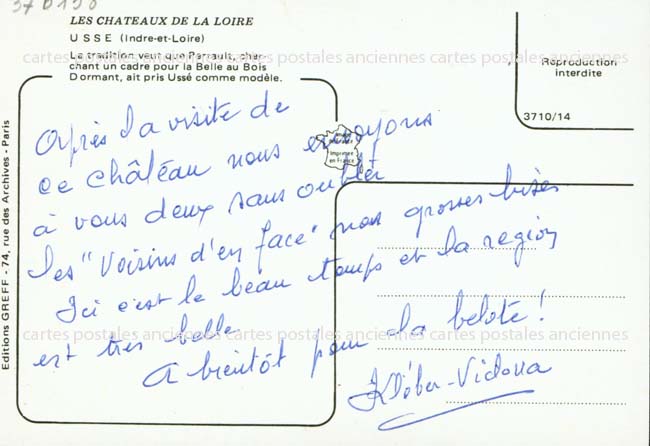 37 0190
LES CHATEAUX DE LA LOIRE
USSE (Indre-et-Loire)
La tradition veut que Perrault, cher-
chant un cadre pour la Belle au Bois
Dormant, ait pris Ussé comme modèle.
Reproduction
interdite
3710/14
Editions GREFF - 74, rue des Archives - Paris
Imprimée
en France
cartes postales anciennes cartes postales anciennes cartes postales anciennes
Après la visite de
ce château nous envoyons
à vous deux sans oublier
les "Voisins d'en face" nos grosses bises
Ici c'est le beau temps et la region
est tres belle
A bientôt pour la belote!
Kléber-
cartes postales anciennes cartes postales anciennes cartes postales anciennes